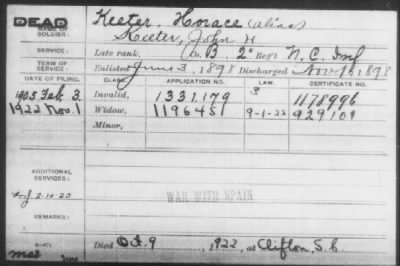 DEAD
NAME OF SOLDIER:
Keeter, Horace (alias)
Keeter, John H
SERVICE:
Late rank, Co. B, 2d Reg't N.C. Inf
TERM OF SERVICE:
Enlisted June 3, 1898 Discharged Nov 1898
DATE OF FILING. CLASS. APPLICATION NO. LAW CERTIFICATE NO.
1905 Feb. 3. Invalid, 1331.179 1178996
1922 Nov. 1 Widow, 1196451 9-1-22 929109
Minor,
ADDITIONAL SERVICES:
2-10-23
WAR WITH SPAIN
REMARKS:
Died Oct. 9, 1922, at Clifton, S.C.